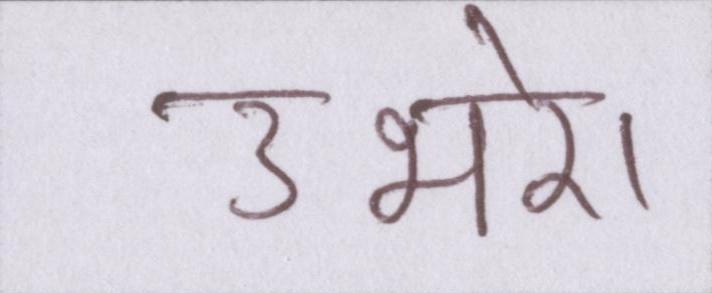 उभरे।